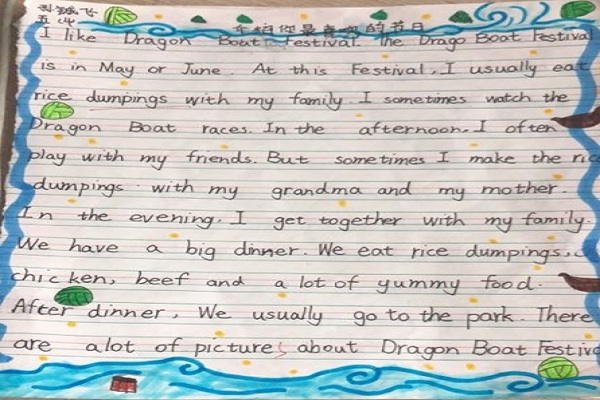 五(4)
介绍你最喜欢的节日
I like Dragon Boat Festival. The Drago Boat Festival
is in May or June. At this Festival, I usually eat
rice dumpings with my family. I sometimes watch the
Dragon Boat races. In the afternoon. I often
play with my friends. But sometimes I make the rice
dumpings with my grandma and my mother.
In the evening. I get together with my family.
We have a big dinner. We eat rice dumpings,
chicken, beef and a lot of yummy food.
After dinner, We usually go to the park. There
are alot of pictures about Dragon Boat Festiv